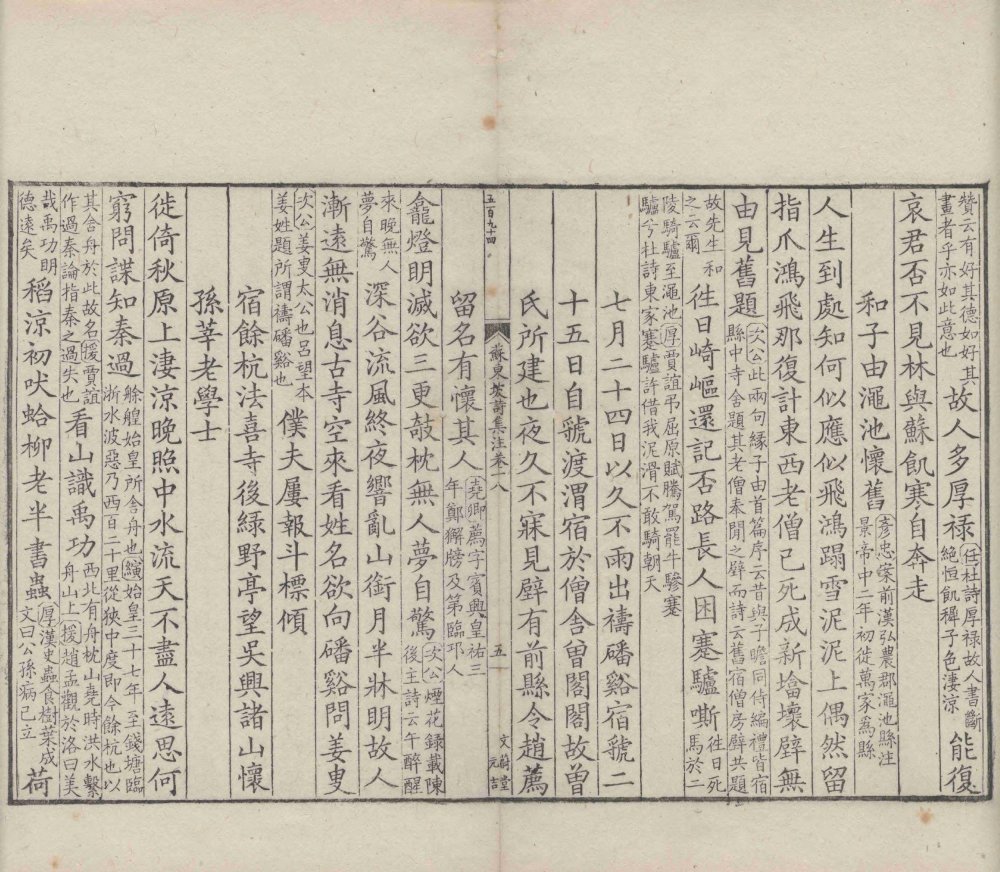 贊云有好其德如好其
畫者乎亦如此意也
故人多厚祿
任杜詩厚祿故人書斷
絕恒飢稺子色淒涼
能復
哀君否不見林與蘇飢寒自奔走
和子由澠池懷舊
彥忠案前漢弘農郡澠池縣注
景帝中二年初徙萬家爲縣
人生到處知何似應似飛鴻蹋雪泥泥上偶然留
指爪鴻飛那復計東西老僧已死成新墖壞壁無
由見舊題
次公此兩句緣子由首篇序云昔與子瞻同侍編禮皆宿
縣中寺舍題其老僧奉閒之壁而詩云舊宿僧房壁共題
故先生和
之云爾
往日崎嶇還記否路長人困蹇驢嘶
往日死
馬於二
陵騎驢至澠池厚賈誼弔屈原賦騰駕罷牛驂蹇
驢兮杜詩東家蹇驢許借我泥滑不敢騎朝天
七月二十四日以久不雨出禱磻谿宿虢二
十五日自虢渡渭宿於僧舍曽閣閣故曽
氏所建也夜久不寐見壁有前縣令趙薦
五百九十四
蘇東坡詩集注卷二八
五
文蔚堂
元吉
留名有懷其人
堯卿薦字賓興皇祐三
年鄭獬牓及第臨邛人
龕燈明滅欲三更敧枕無人夢自驚
次公煙花録載陳
後主詩云午醉醒
來晚無人
夢自驚
深谷流風終夜響亂山銜月半牀明故人
漸遠無消息古寺空來看姓名欲向磻谿問姜叟
次公姜叟太公也呂望本
姜姓題所謂禱磻谿也
僕夫屢報斗標傾
宿餘杭法喜寺後綠野亭望吳興諸山懷
孫莘老學士
徙倚秋原上淒涼晚照中水流天不盡人遠思何
窮問諜知秦過
艅艎始皇所舍舟也縯始皇三十七年至錢塘臨
浙水波惡乃西百二十里從狹中度即今餘杭也以
其舍舟於此故名援賈誼
作過秦論指秦之過失也
看山識禹功
西北有舟枕山堯時洪水繫
舟山上援趙孟觀於洛曰美
哉禹功明
德遠矣
稻涼初吠蛤柳老半書蟲
厚漢史蟲食樹葉成
文曰公孫病已立
荷